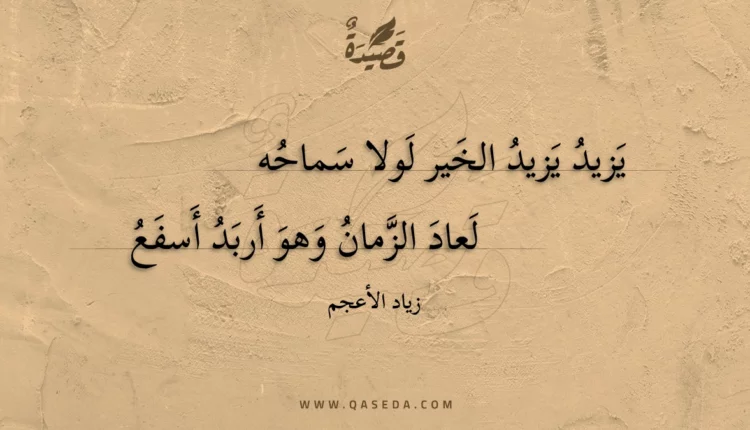 قَصِيْدَةٌ
يَزيدُ يَزيدُ الخَير لَولا سَماحُه
لَعادَ الزَّمانُ وَهوَ أَربَدُ أَسفَعُ
زياد الأعجم
WWW.QASEDA.COM